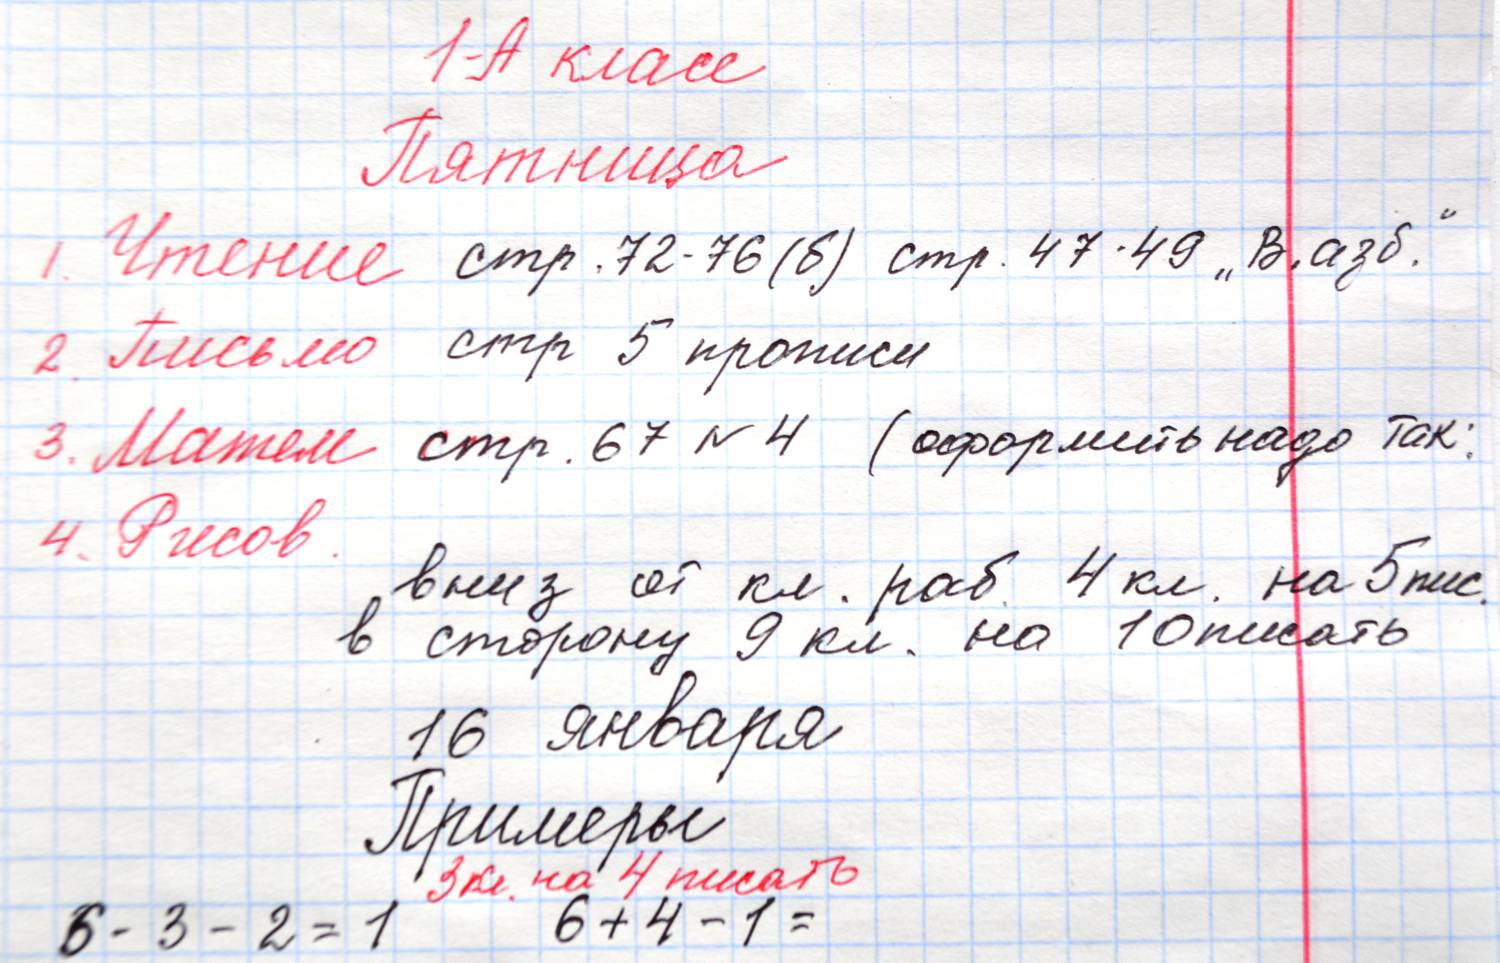 1-А класс
Пятница
1. Чтение стр. 72-76 (б) стр. 47-49 „В. азб."
2. Письмо стр 5 прописи
3. Матем стр. 67 № 4 (оформить надо так:
4. Рисов.
вниз от кл. раб. 4 кл. на 5 пис.
в сторону 9 кл. на 10 писать
16 января
Примеры
3 кл. на 4 писать
6 - 3 - 2 = 1 6 + 4 - 1 =